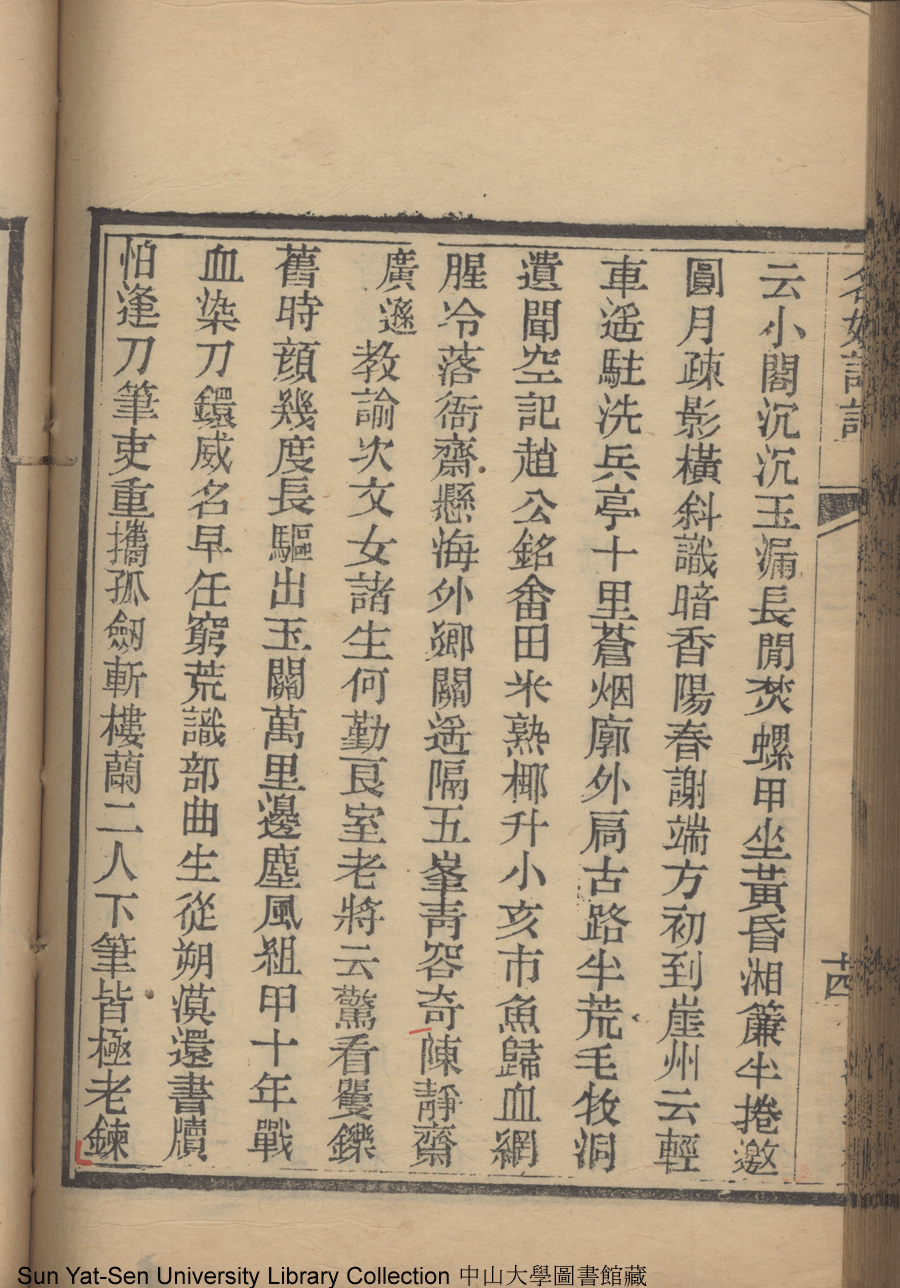 云小閣沉沉玉漏長閒焚螺甲坐黃昏湘簾半捲邀
圓月疎影橫斜識暗香陽春謝端方初到崖州云輕
車遥駐洗兵亭十里蒼烟廓外扃古路半荒毛牧洞
遺聞空記趙公銘畬田米熟椰升小亥市魚歸血網
腥冷落衙齋懸海外鄉關遥隔五峯青容奇陳靜齋
廣遜教諭次文女諸生何勤良室老將云驚看矍鑠
舊時顔幾度長驅出玉關萬里邊塵風組甲十年戰
血染刀鐶威名早任窮荒識部曲生從朔漠還書牘
怕逢刀筆吏重攜孤劔斬樓蘭二人下筆皆極老鍊
名媛詩話
Sun Yat-Sen University Library Collection 中山大學圖書館藏